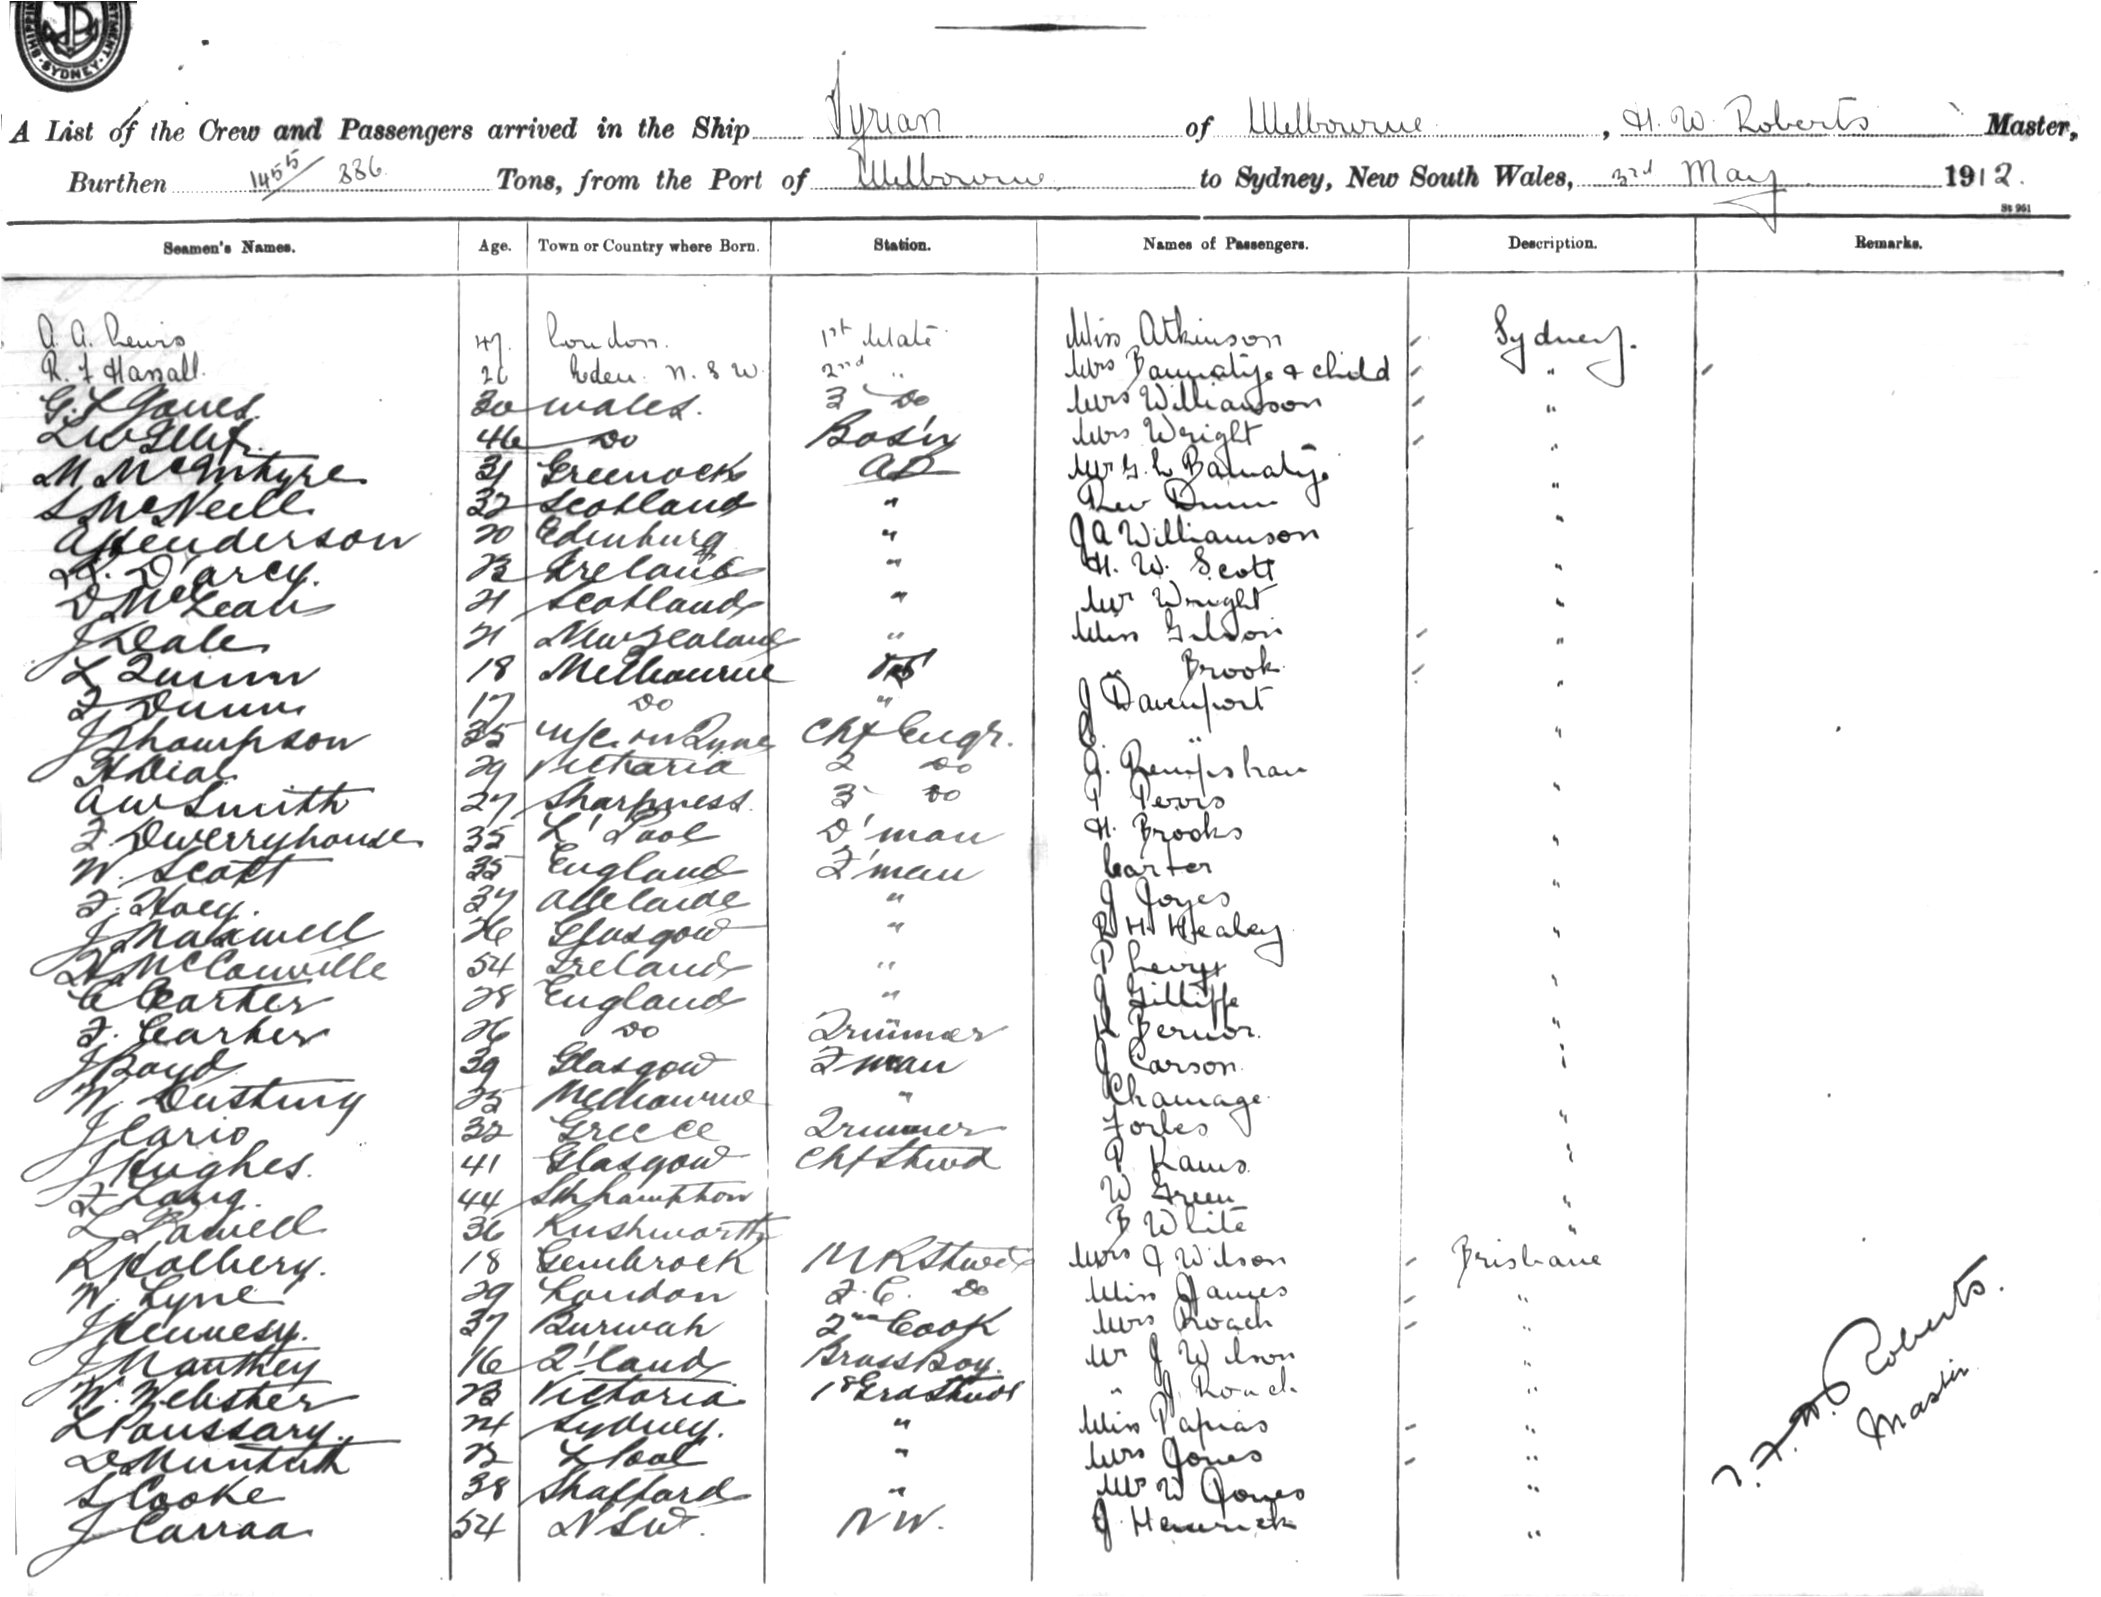 SHIPPING DEPARTMENT SYDNEY
A List of the Crew and Passengers arrived in the Ship Tyrian of Melbourne, H. W. Roberts Master,
Burthen 1455/886 Tons, from the Port of Melbourne to Sydney, New South Wales, 3rd May 1912.
St 961
Seamen's Names. Age. Town or Country where Born. Station. Names of Passengers. Description. Remarks.
A. A. Lewis 47 London. 1st Mate Miss Atkinson Sydney.
R. F Hassall. 26 Eden. N. S W. 2nd " Mrs Bannatije & child "
G. L Jones 30 Wales. 3 Do Mrs Williamson "
46 Do Bos'n Mrs Wright "
M. McIntyre 31 Greenock AB Mr G. L Bannatije "
S McNeill 32 Scotland " Rev Dunn "
A Henderson 20 Edinburg " J A Williamson "
D'arcy. 23 Ireland " H. W. Scott "
D McLean 21 Scotland " Mr Wright "
J Dale 21 New Zealand " Miss Gibson "
L Quinn 18 Melbourne " Brook "
F Dunn 17 Do " J Davenport
J Thompson 35 N/C. on Tyne Chf Engr. C. " "
H Dial 29 Victoria 2 Do
A W Smith 27 Sharpness. 3 Do P "
F. Dwerryhouse 35 L'Pool D'man H. Brooks "
W. Scott 35 England F'man Carter "
F. Hoey. 37 Adelaide " J Joyes "
J Maxwell 26 Glasgow " R H Healey "
H McConville 54 Ireland " P Levy "
C Carter 28 England " J Gilliffe "
F. Carher 26 Do Trimmer K Bernor. "
J Boyd 39 Glasgow F man J Carson. "
W. Dusting 25 Melbourne " Chamage
J Cario 32 Greece Trimmer Forbes "
J Hughes. 41 Glasgow Chf Stwd P Kams "
F Lang. 44 Sthhampton W Green "
L Powell 36 Rushworth B White "
R Holbery. 18 Gembrook M R Stwd Mrs J Wilson Brisbane
W. Lyne 29 London F. C. Do Miss James "
J Hennesy. 37 Burwah 2nd Cook Mrs Roach "
J Manthey 16 Q'land Brass Boy. Mr J Wilson "
W. Webster 23 Victoria 1st Grd Stwd " J. Roach "
L Poussary. 24 Sydney. " Miss Papias "
D Munteith 23 L Pool " Mrs Jones "
S Cooke 38 Shafford " Mr W Jones "
J Carraa 54 N S W. N W. J. Henrick "
Roberts.
Master